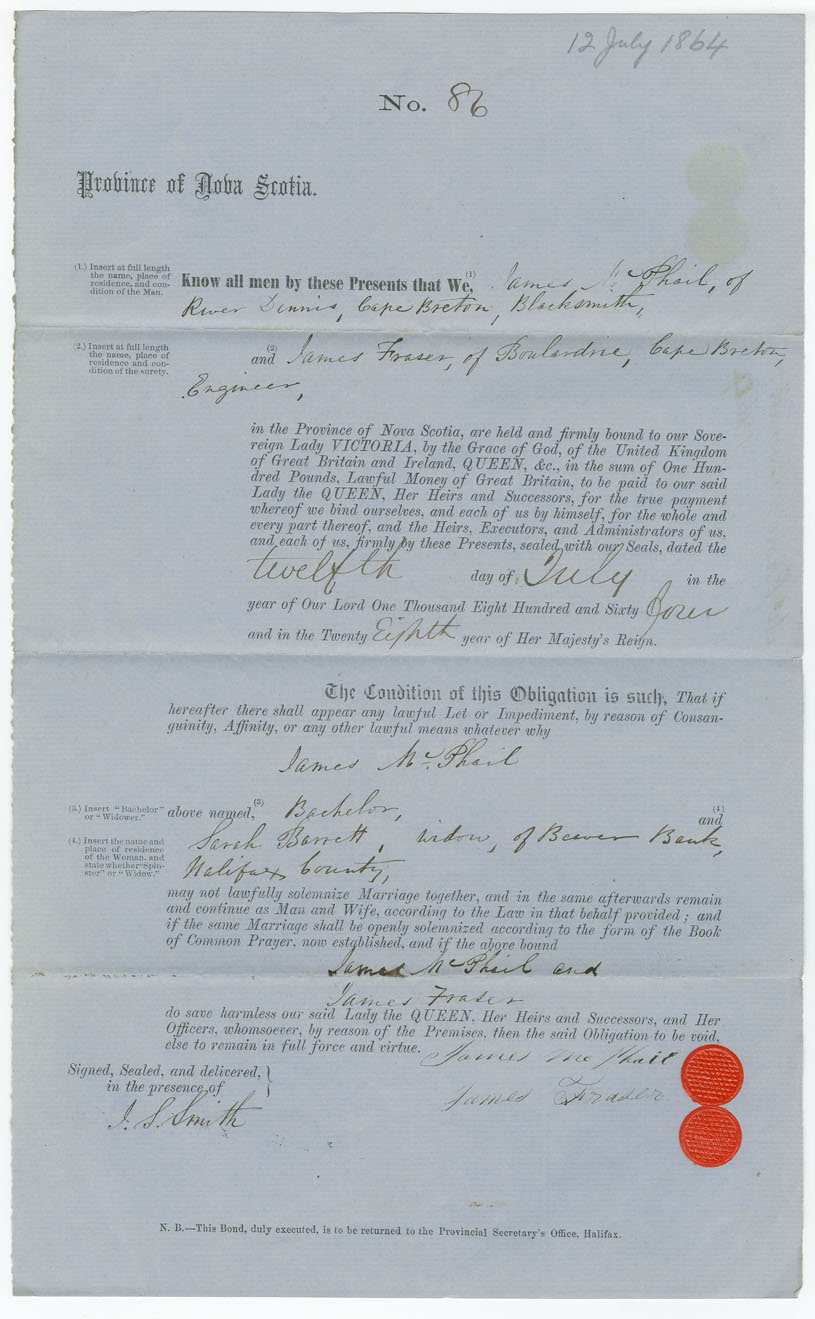 12 July 1864
No. 86
Province of Nova Scotia.
(1.) Insert at full length
the name, place of
residence, and con-
dition of the Man.
Know all men by these Presents that We, (1) James McPhail, of
River Dennis, Cape Breton, Blacksmith,
(2.) Insert at full length
the name, place of
residence and con-
dition of the surety.
(2)
and James Fraser, of Boulardrie, Cape Breton,
Engineer,
in the Province of Nova Scotia, are held and firmly bound to our Sove-
reign Lady VICTORIA, by the Grace of God, of the United Kingdom
of Great Britain and Ireland, QUEEN, &c., in the sum of One Hun-
dred Pounds, Lawful Money of Great Britain, to be paid to our said
Lady the QUEEN, Her Heirs and Successors, for the true payment
whereof we bind ourselves, and each of us by himself, for the whole and
every part thereof, and the Heirs, Executors, and Administrators of us,
and each of us, firmly by these Presents, sealed with our Seals, dated the
twelfth day of July in the
year of Our Lord One Thousand Eight Hundred and Sixty four
and in the Twenty Eighth year of Her Majesty's Reign.
The Condition of this Obligation is such, That if
hereafter there shall appear any lawful Let or Impediment, by reason of Consan-
guinity, Affinity, or any other lawful means whatever why
James McPhail
(3.) Insert "Bachelor"
or "Widower."
above named, (3) Bachelor, (4)
and
(4.) Insert the name and
place of residence
of the Woman, and
state whether "Spin-
ster" or "Widow."
Sarah Barrett, widow, of Beaver Bank,
Halifax County,
may not lawfully solemnize Marriage together, and in the same afterwards remain
and continue as Man and Wife, according to the Law in that behalf provided; and
if the same Marriage shall be openly solemnized according to the form of the Book
of Common Prayer, now established, and if the above bound
James McPhail and
James Fraser
do save harmless our said Lady the QUEEN, Her Heirs and Successors, and Her
Officers, whomsoever, by reason of the Premises, then the said Obligation to be void,
else to remain in full force and virtue.
James McPhail
Signed, Sealed, and delivered, }
in the presence of
James Fraser
J. S. Smith
N. B.—This Bond, duly executed, is to be returned to the Provincial Secretary's Office, Halifax.